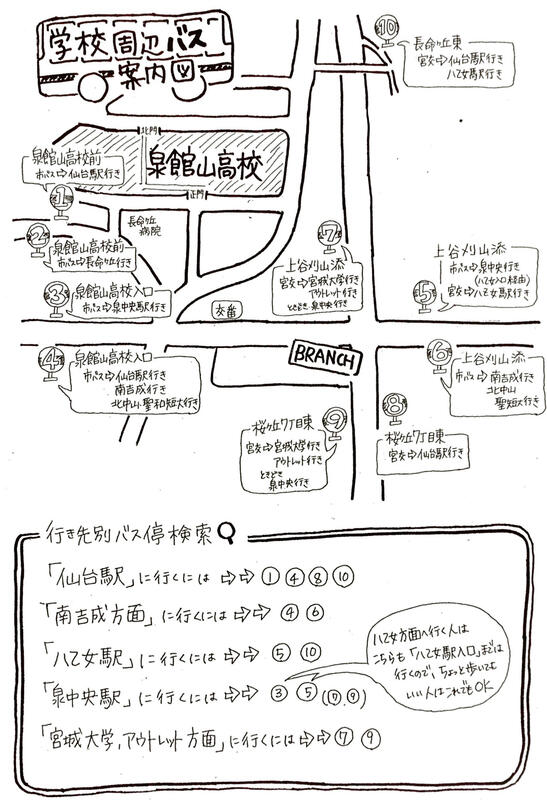 学校周辺バス
案内図
⑩
長命ヶ丘東
宮交⇨仙台駅行き
八乙女駅行き
北門
泉館山高校
正門
泉館山高校前
市バス⇨仙台駅行き
①
長命ヶ丘
病院
②
泉館山高校前
市バス⇨長命ヶ丘行き
⑦
上谷刈山添
宮交⇨宮城大学行き
アウトレット行き
ときどき泉中央行き
③
泉館山高校入口
市バス⇨泉中央駅行き
交番
上谷刈山添
市バス⇨泉中央行き
(八乙女入口経由)
宮交⇨八乙女駅行き
⑤
④
泉館山高校入口
市バス⇨仙台駅行き
南吉成行き
北中山 聖和短大行き
BRANCH
⑥
上谷刈山添
市バス⇨南吉成行き
北中山
聖短大行き
桜ヶ丘7丁目東
宮交⇨宮城大学行き
アウトレット行き
ときどき
泉中央行き
⑨
⑧
桜ヶ丘7丁目東
宮交⇨仙台駅行き
行き先別バス停検索
「仙台駅」に行くには⇨⇨①④⑧⑩
「南吉成方面」に行くには⇨⇨④⑥
「八乙女駅」に行くには⇨⇨⑤⑩
「泉中央駅」に行くには⇨⇨③⑤(⑦,⑨)
「宮城大学,アウトレット方面」に行くには⇨⇨⑦⑨
八乙女方面へ行く人は
こちらも「八乙女駅入口」までは
行くので、ちょっと歩いても
いい人はこれでもOK